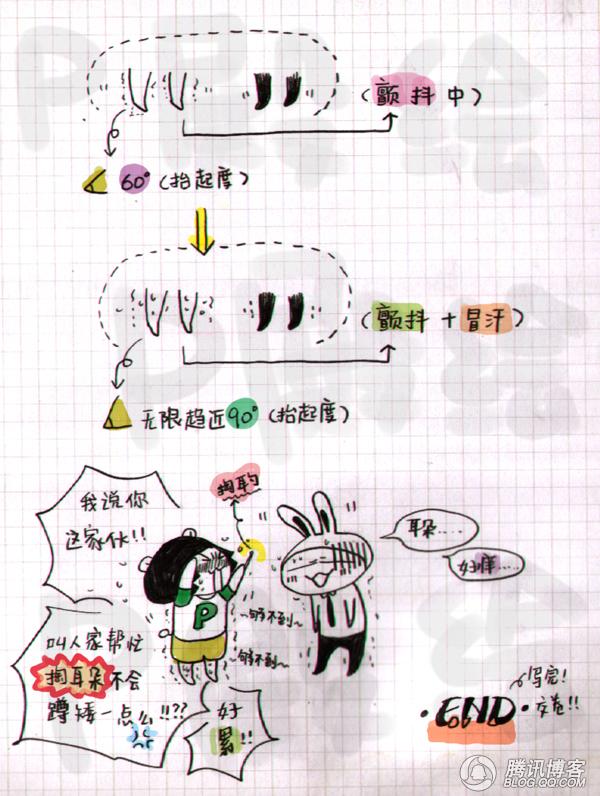 (颤抖中)
60°(抬起度)
(颤抖+冒汗)
无限趋近90°(抬起度)
我说你
这家伙!!
掏耳勺
耳朵……
好痒……
P
~够不到~
~够不到~
叫人家帮忙
掏耳朵不会
蹲矮一点么!!??
好
累!!
·END·
吗完!
交卷!!
P同绘
P同绘
腾讯博客
BLOG.QQ.COM